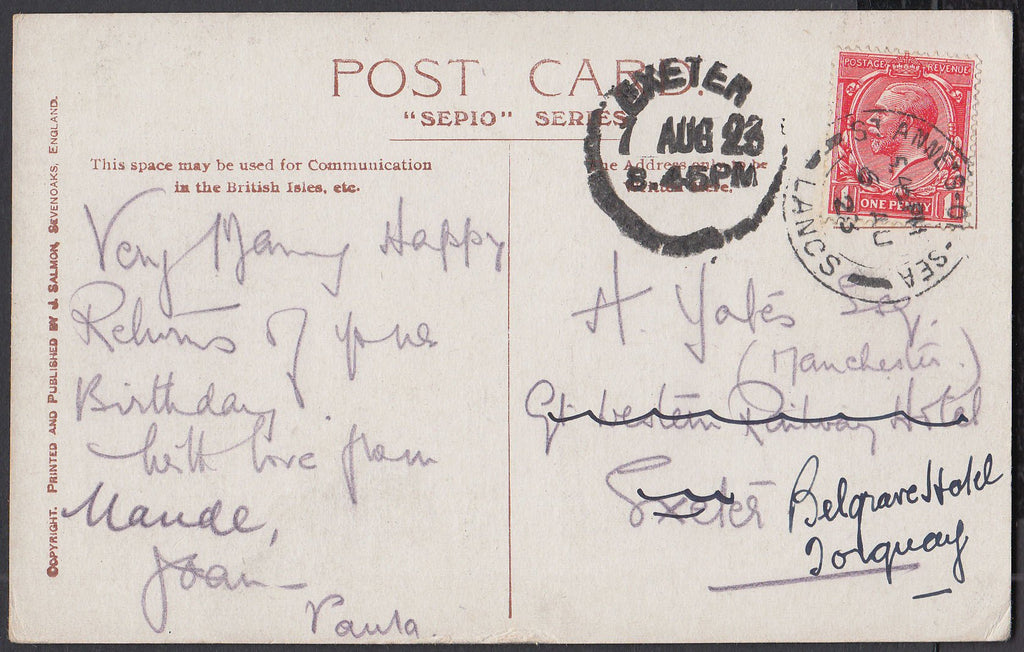 POST CARD.
"SEPIO" SERIES
This space may be used for Communication
in the British Isles, etc.
The Address only to be
Written Here.
COPYRIGHT. PRINTED AND PUBLISHED BY J. SALMON, SEVENOAKS, ENGLAND.
EXETER
7 AUG 23
8.45PM
POSTAGE REVENUE
1 ONE PENNY 1
ST ANNE'S-ON-SEA
LANCS
5.15 PM
6 AU
23
Very Many Happy
Returns of your
Birthday.
With love from
Maude,
Joan
Paula.
H. Yates Esq.
(Manchester.)
Gt Western Railway Hotel
Exeter
Belgrave Hotel
Torquay